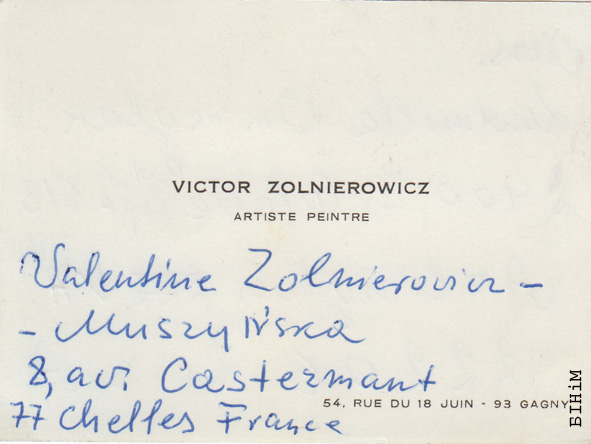 VICTOR ZOLNIEROWICZ
ARTISTE PEINTRE
Valentine Zolnierovicz -
- Muszyńska
8, av. Castermant
54, RUE DU 18 JUIN - 93 GAGNY
77 Chelles France
БІНіМ